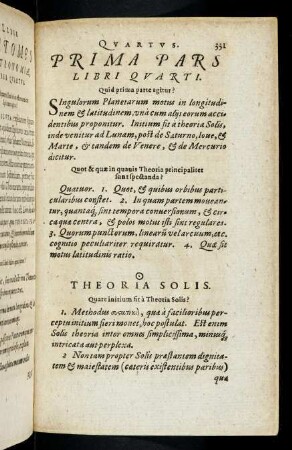 QVARTVS. 331
PRIMA PARS
LIBRI QVARTI.
Quid prima parte agitur?
SIngulorum Planetarum motus in longitudi-
nem & latitudinem, vnà cum alijs eorum acci-
dentibus proponitur. Initium fit à theoria Solis,
inde venitur ad Lunam, post de Saturno, Ioue, &
Marte, & tandem de Venere, & de Mercurio
dicitur.
Quot & quæ in quauis Theoria principaliter
sunt spectanda?
Quatuor. 1. Quot, & quibus orbibus parti-
cularibus constet. 2. In quam partem mouean-
tur, quantaq; sint tempora conuersionum, & cir-
ca quæ centra, & polos motus isti sint regulares.
3. Quorum punctorum, linearũ vel arcuum, etc.
cognitio peculiariter requiratur. 4. Quæ sit
motus latitudinis ratio.
☉
THEORIA SOLIS.
Quare initium fit à Theoria Solis?
1. Methodus, quæ à facilioribus per-
ceptu initium fieri monet, hoc postulat. Est enim
Solis theoria inter omnes simplicissima, minusq;
intricata aut perplexa.
2 Non tam propter Solis præstantem dignita-
tem & maiestatem (cæteris existentibus paribus)
qua